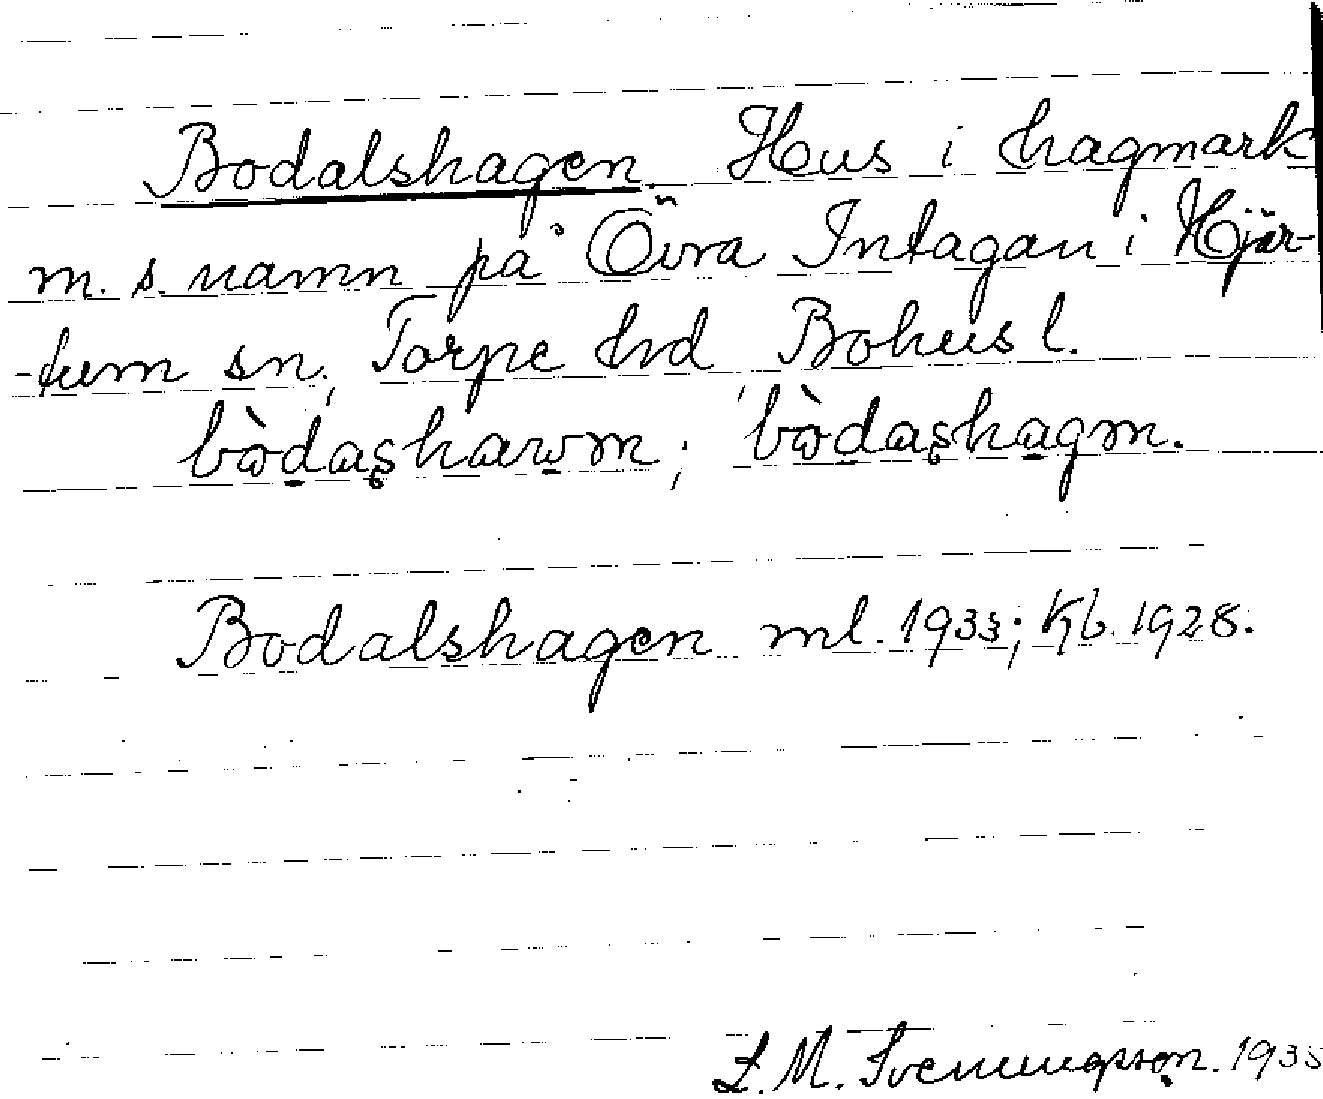 Bodalshagen. Hus i hagmark
m. s. namn på Övra Intagan i Hjär-
-tum sn, Torpe hd Bohusl.
bòdaʂhawm; bòdaʂhagm.
Bodalshagen ml. 1933; Kb. 1928.
L. M. Svenungsson. 1935